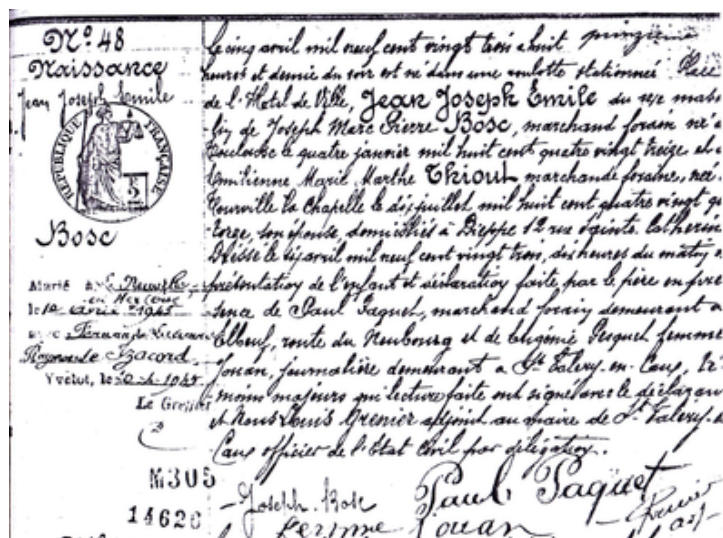 Nº 48
Naissance
Jean Joseph Emile
RÉPUBLIQUE FRANÇAISE
Bosc
Marié à la Neuville
le 10 avril 1945
avec Fernande
Raymonde
Yvetot, le 20-4-1945
Le Greffier
M305
14620
Le cinq avril mil neuf cent vingt trois à huit
heures et demie du soir est né dans une roulotte stationnée Place
de l'Hotel de Ville, Jean Joseph Emile du sexe mas
lin de Joseph Marc Pierre Bosc, marchand forain né à
Toulouse le quatre janvier mil huit cent quatre vingt treize et d
Emilienne Marie Marthe Thiout marchande foraine, née
Tourville la Chapelle le dix juillet mil huit cent quatre vingt q
torze, son épouse, domiciliés à Dieppe 12 rue Sainte Catherine
Dressé le six avril mil neuf cent vingt trois, dix heures du matin
présentation de l'enfant et déclaration faite par le père en pré
sence de Paul Paquet, marchand forain demeurant à
Elbeuf, route du Neubourg et de Eugénie Pesquet femme
Jouan, journalière demeurant à St Valery-en-Caux, té
moins majeurs qui lecture faite ont signé avec le déclarant
et Nous Louis Grenier adjoint au maire de St Valery-e
Caux officier de l'Etat Civil par délégation.
Joseph Bosc
Paul Paquet
femme Jouan
Grenier
adj